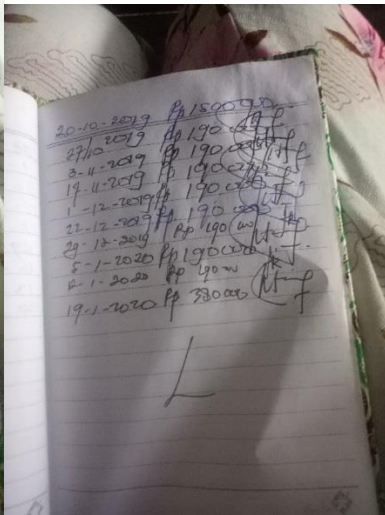 20-10-2019 Rp 1500.000
27/10 2019 Rp 190.000
3-11-2019 Rp 190.000
17-11-2019 Rp 190.000
1-12-2019 Rp 190.000
22-12-2019 Rp 190.000
29-12-2019 Rp 190
5-1-2020 Rp 190.000
1-2020 Rp 190
19-1-2020 Rp 380.000
L